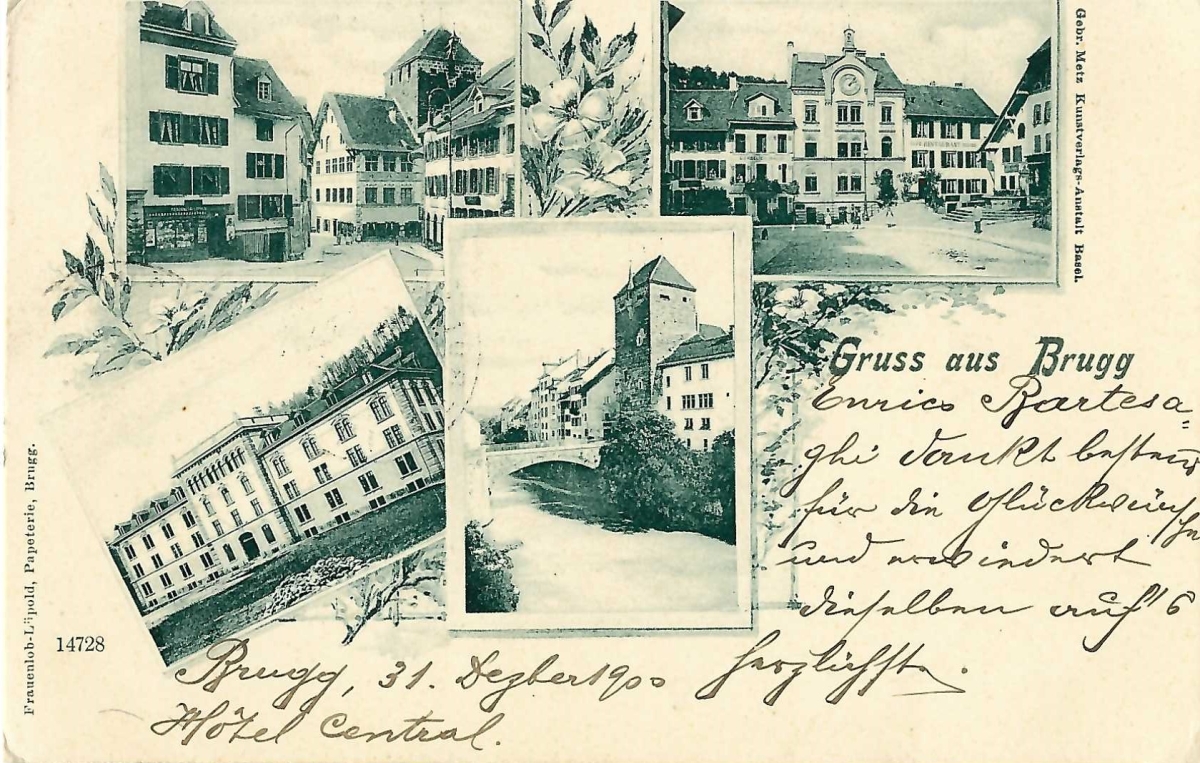 Gebr. Metz Kunstverlags-Anstalt Basel.
Gruss aus Brugg
Enrico Bartesa„
ghi dankt bestens
für die Glückwünsche
und erwiedert
dieselben auf's
herzlichste.
Brugg, 31. Dezber 1900
Hôtel Central.
14728
Frauenlob-Läpold, Papeterie, Brugg.
RESTAURANT